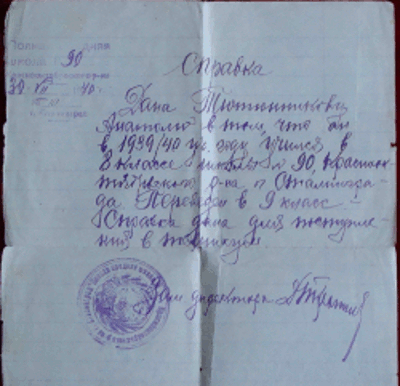 школа № 90
Справка
Дана Тютюнникову
Анатолию в том, что он
в 1939/40 уч. году учился в
8 классе школы № 90, Красноок-
тябрьского р-на г. Сталингра-
да. Переведен в 9 класс.
Справка дана для поступле-
ния в техникум.
Зам директора